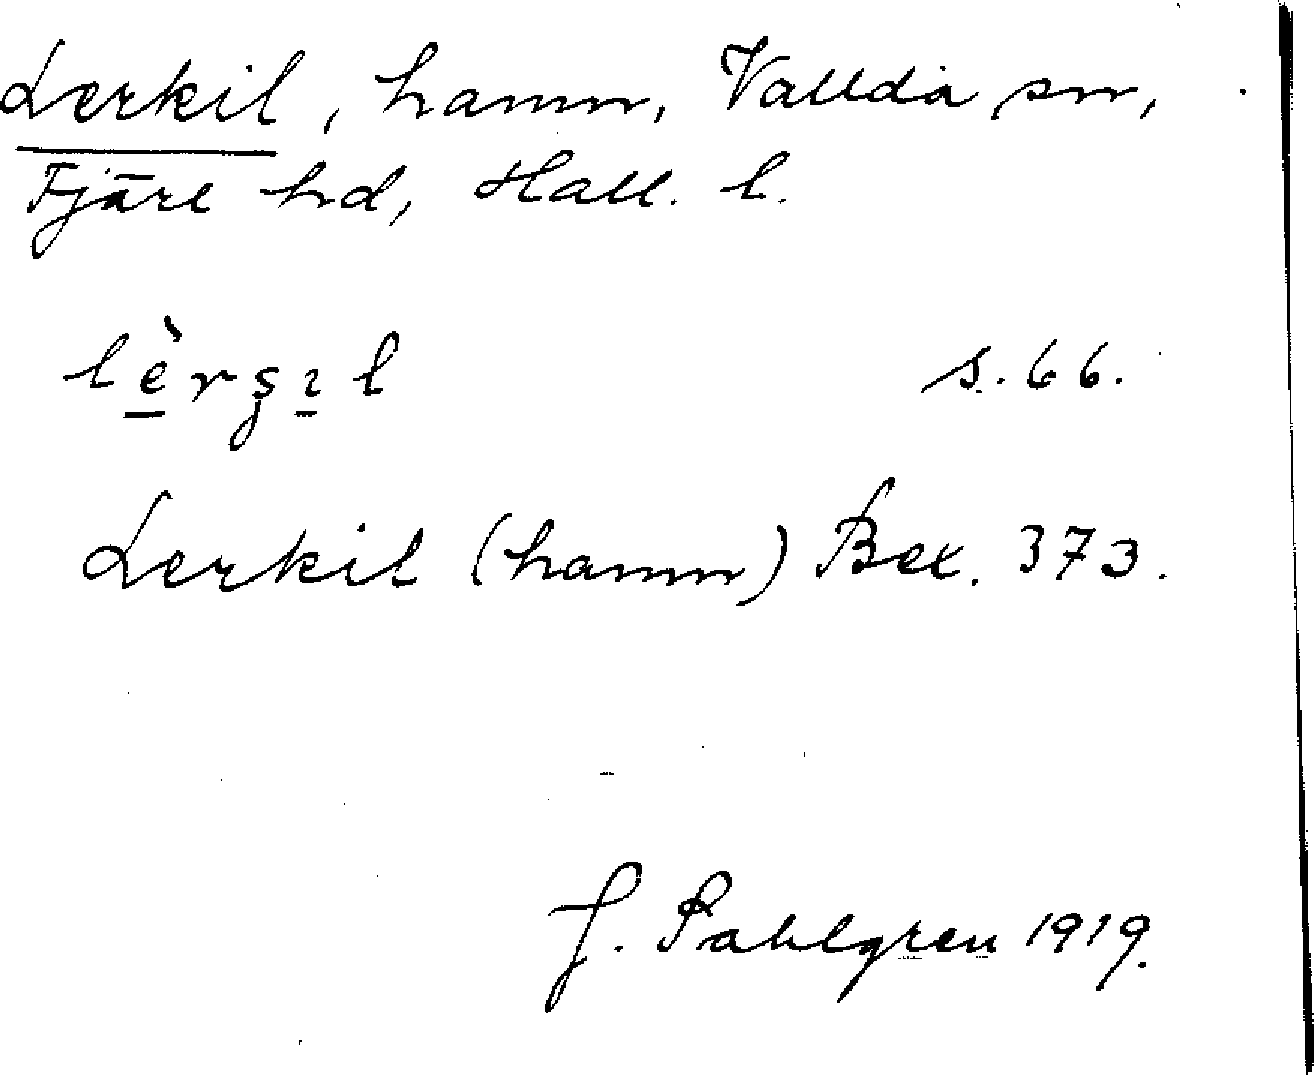 Lerkil, hamn, Vallda sn,
Fjäre hd, Hall. l.
lèrşıl s. 66.
Lerkil (hamn) Bex. 373.
J. Sahlgren 1919.